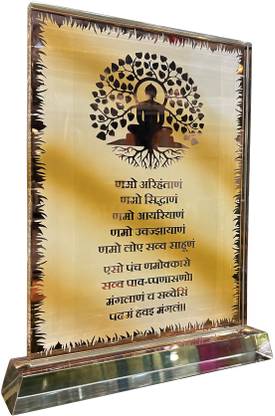 णमो अरिहंताणं
णमो सिद्धाणं
णमो आयरियाणं
णमो उवज्झायाणं
णमो लोए सव्व साहूणं
एसो पंच णमोक्कारो
सव्व पाव-प्पणासणो।
मंगलाणं च सव्वेसिं
पढमं हवइ मंगलं॥